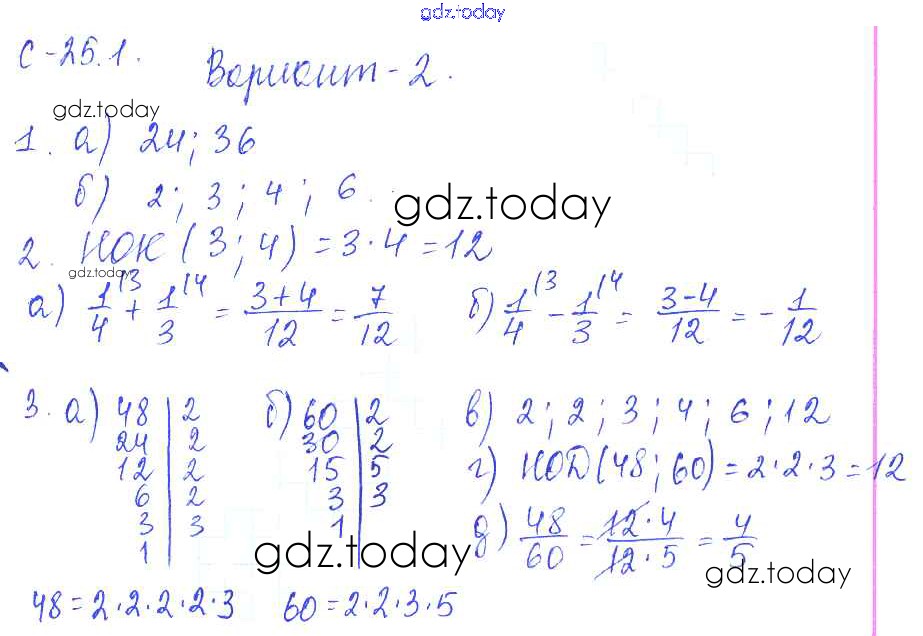 gdz.today
С-25.1. Вариант-2.
gdz.today
1. а) 24; 36
б) 2; 3; 4; 6.
gdz.today
2. НОК (3; 4) = 3·4 = 12
gdz.today
а) 1/4 \3 + 1/3 \4 = 3+4/12 = 7/12 б) 1/4 \3 - 1/3 \4 = 3-4/12 = -1/12
3. а) 48 | 2 б) 60 | 2 в) 2; 2; 3; 4; 6; 12
24 | 2 30 | 2
12 | 2 15 | 5 г) НОД(48; 60) = 2·2·3 = 12
6 | 2 3 | 3
3 | 3 1 | д) 48/60 = 12·4/12·5 = 4/5
1 |
gdz.today
gdz.today
48 = 2·2·2·2·3 60 = 2·2·3·5